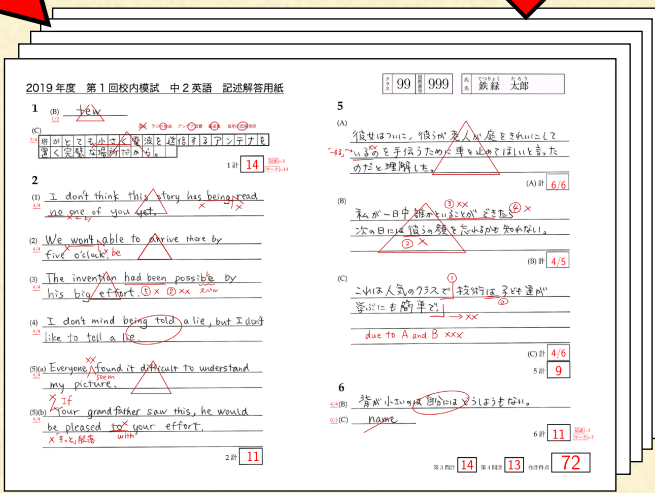 2019年度 第1回校内模試 中2英語 記述解答用紙
クラス 99 999 氏名 てつりょく たろう 鉄緑 太郎
1
(B) few
(C)
塔がとても小さく電波を送信するアンテナを
置く完璧な場所だから。
1計 14
2
(1) I don't think this story has being read
no one of you yet.
(2) We won't able to arrive there by
five o'clock. be
(3) The invention had been possible by
his big effort. ① × ② ××
(4) I don't mind being told a lie, but I don't
like to tell a lie.
(5)(a) Everyone found it difficult to understand
seem
my picture.
If
(5)(b) Your grandfather saw this, he would
be pleased to your effort.
with
2計 11
5
(A)
彼女はついに、彼らが老人が庭をきれいにして
いるのを手伝うために車を止めてほしいと言った
のだと理解した。
(A)計 6/6
(B)
③ ×× ④ ×
私が一日中誰かといることができたら
次の日には彼らの顔を忘れるかも知れない。
② ×
(B)計 4/5
(C)
①
これは人気のクラスで、技術は子ども達が
②
学ぶにも簡単で、
→ ××
due to A and B ×××
(C)計 4/6
5計 9
6
(B) 背が小さいのは自分にはどうしようもない。
(C) name
6計 11
第3問計 14 第4問計 13 合計得点 72